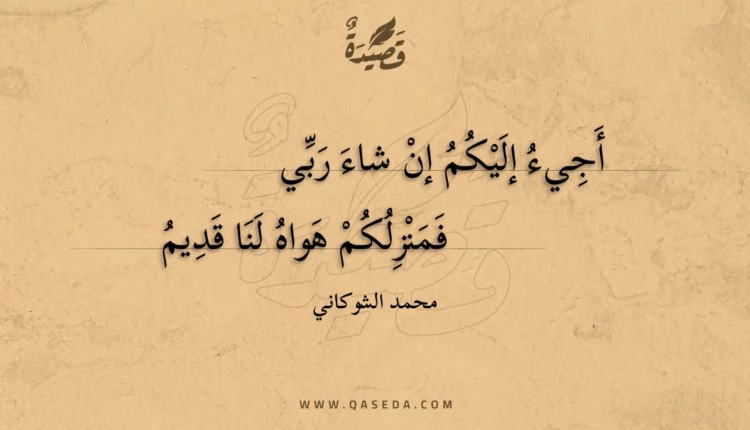 قَصِيْدَةٌ
أَجِيءُ إلَيْكُمُ إنْ شاءَ رَبِّي
فَمَنْزِلُكُمْ هَواهُ لَنَا قَدِيمُ
محمد الشوكاني
WWW.QASEDA.COM